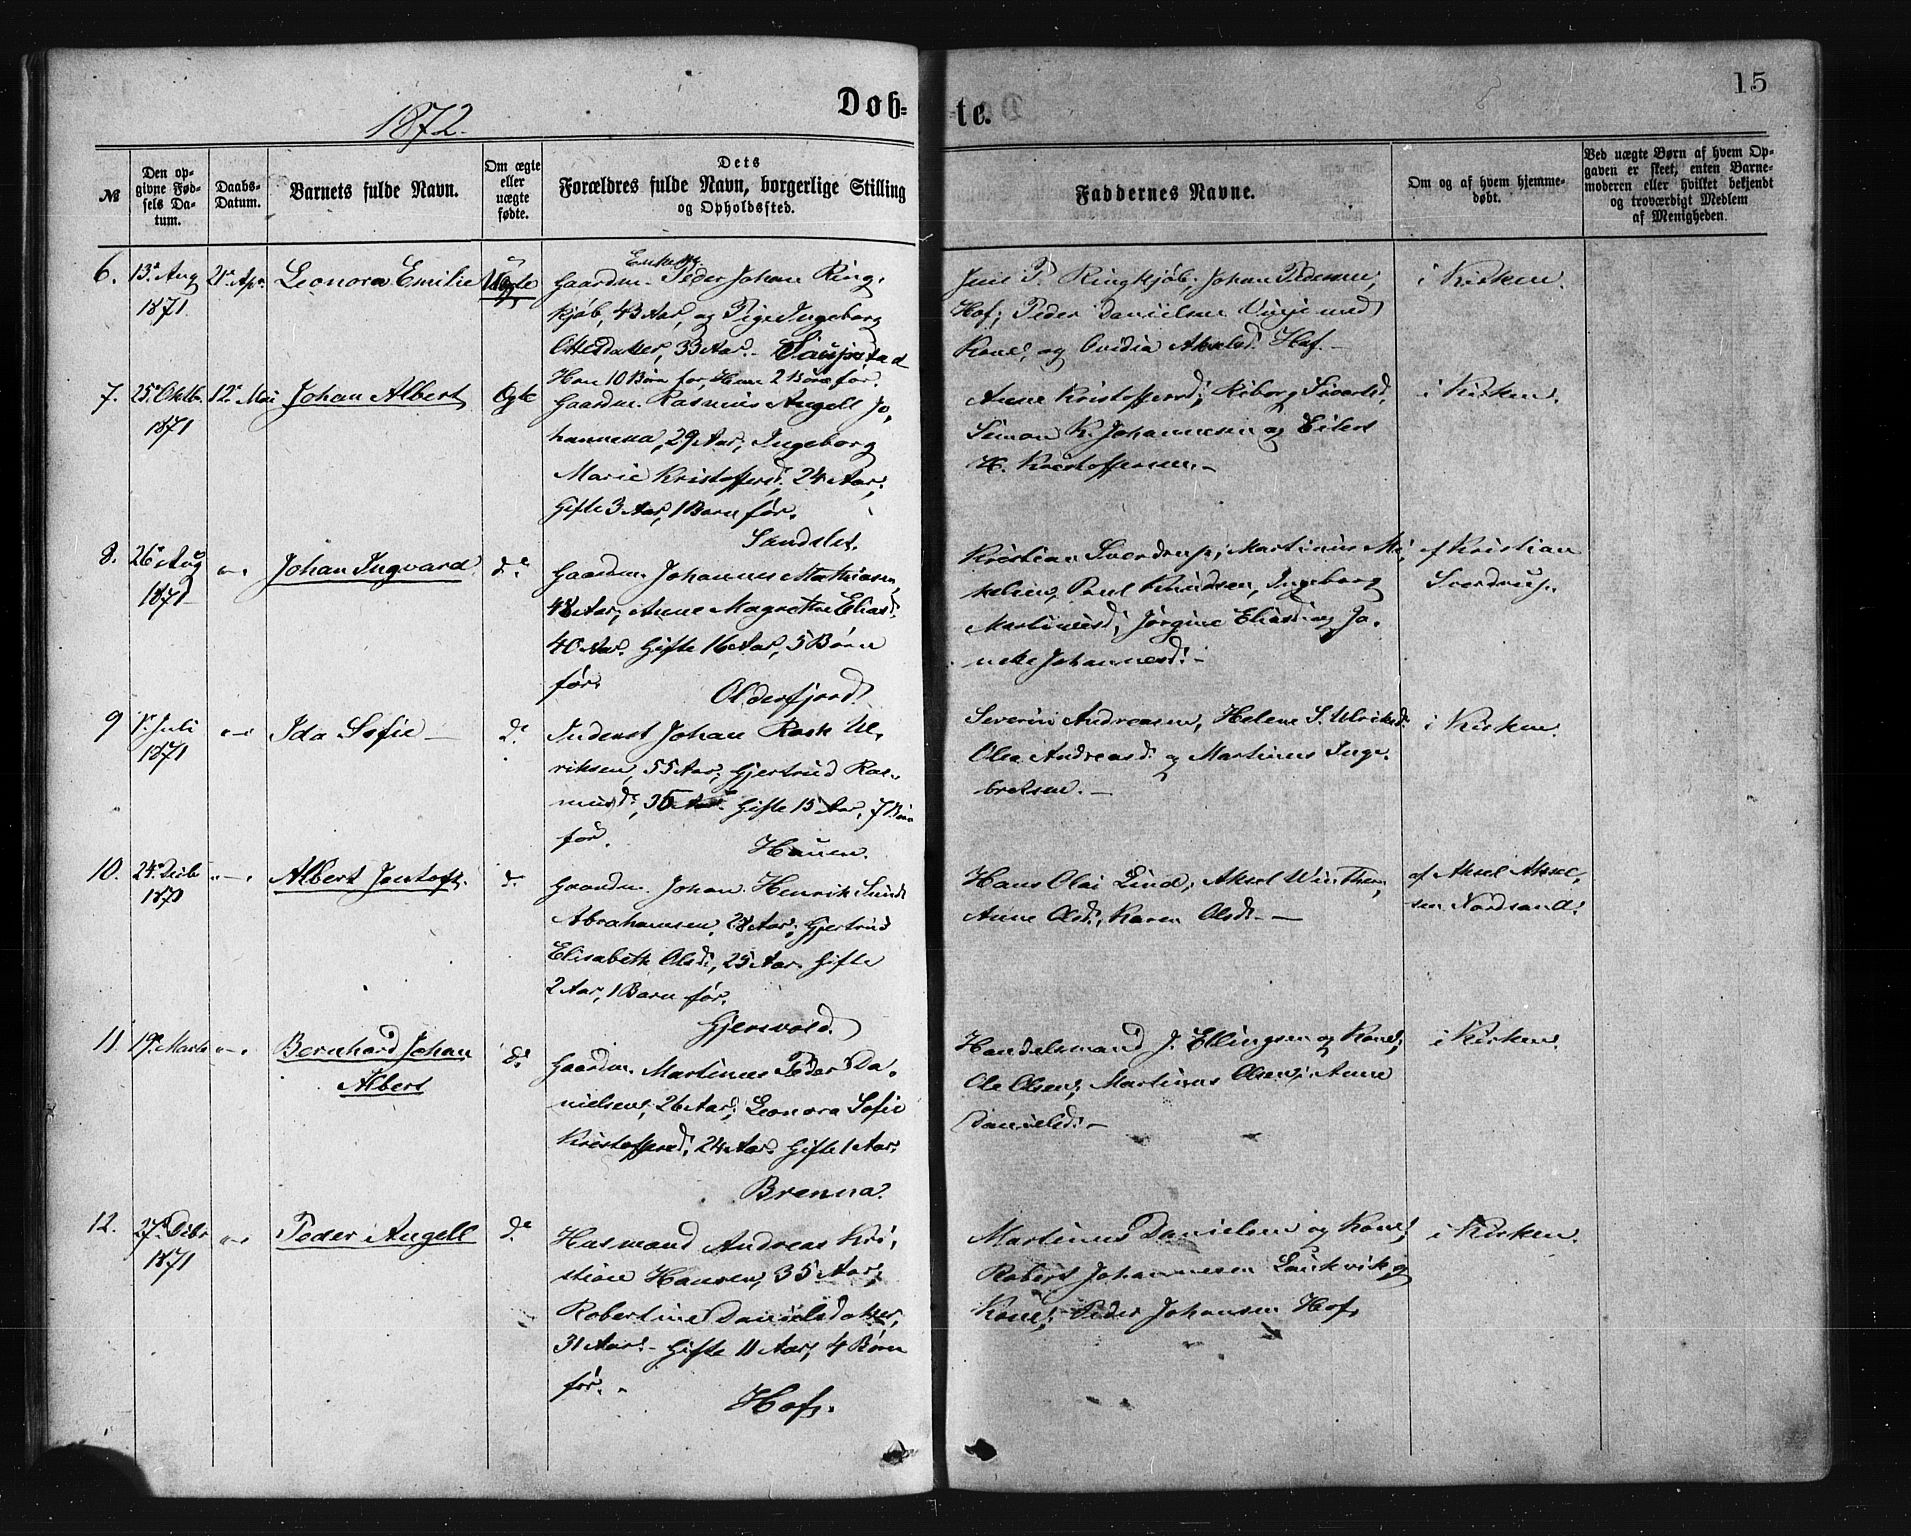 1872.
Døb-
te.
15
№
Den op-
givne Fød-
sels Da-
tum.
Daabs-
Datum.
Barnets fulde Navn.
Om ægte
eller
uægte
fødte.
Dets
Forældres fulde Navn, borgerlige Stilling
og Opholdssted.
Faddernes Navne.
Om og af hvem hjemme-
døbt.
Ved uægte Børn af hvem Op-
gaven er skeet, enten Barne-
moderen eller hvilket bekjendt
og troværdigt Medlem
af Menigheden.
6.
13. Aug
1871
21. Apr.
Leonora Emilie
Uægte
Enkem.
Gaardm. Peder Johan Ring-
kjøb, 43 Aar, og Pige Ingeborg
Ottesdatter, 33 Aar.
Han 10 Børn før, Hun 2 Børn før.
P. Ringkjøb, Johan Pedersen,
Hof; Peder Danielsen med
Kone, og Ovidia Hof.
i Kirken.
7.
25. Oktb.
1871
12. Mai
Johan Albert
Ægte
Gaardm. Rasmus Angell Jo-
hannesen, 29 Aar; Ingeborg
Marie Kristoffersd. 24 Aar;
Gifte 3 Aar, 1 Barn før.
Sandslet.
Anne Kristoffersd; Siversd.
Simon K. Johannesen og Eilert
H. Kristoffersen.
i Kirken.
8.
26. Aug
1871
"
Johan Ingvard
do
Gaardm. Johannes Mathiasen,
48 Aar; Anne Magrethe Eliasd.
40 Aar. Gifte 16 Aar, 5 Børn
før.
Olderfjord
Kristian Sverdrup; Martinus Mi-
kelsen, Paul Knudsen, Ingeborg
Martinusd; Jørgine Eliasd. og Ja-
Johannesd.
af Kristian
Sverdrup.
9
1. Juli
1871
"
Ida Sofie
do
Inderst Johan Rask Ul-
riksen, 55 Aar; Gjertrud Ras-
musd., 35 Aar. Gifte 15 Aar, 7 Børn
før.
Hauen.
Severin Andreasen, Helene S. Ulriksd.
Olea Andreasd. og Martinus Inge-
brelsen.
i Kirken.
10.
24. Decb
1871
"
Albert Jentoft.
do
Gaardm. Johan Henrik
Abrahamsen, 28 Aar; Gjertrud
Elisabeth Olsd., 25 Aar. Gifte
2 Aar, 1 Barn før.
Gjersvold.
Hans Olai Lind; Aksel Winther,
Anne Olsd., Karen Olsd.
af Aksel Aksel-
sen Nordsand.
11.
19. Marts
"
Bernhard Johan
Albert
do
Gaardm. Martinus Peder Da-
nielsen, 26 Aar; Leonora Sofie
Kristoffersd. 24 Aar. Gifte 1 Aar.
Brenna.
Handelsmand J. Ellingsen og Kone;
Ole Olsen; Martinus Olsen; Anne
Danielsd.
i Kirken.
12.
27. Decbr
1871
"
Peder Angell
do
Husmand Andreas Kri-
stian Hansen, 35 Aar;
Robertine Danielsdatter,
31 Aar. Gifte 11 Aar, 4 Børn
før.
Hof.
Martinus Danielsen og Kone;
Robert Johannesen Laukvik og
Kone; Peder Johansen Hof.
i Kirken.